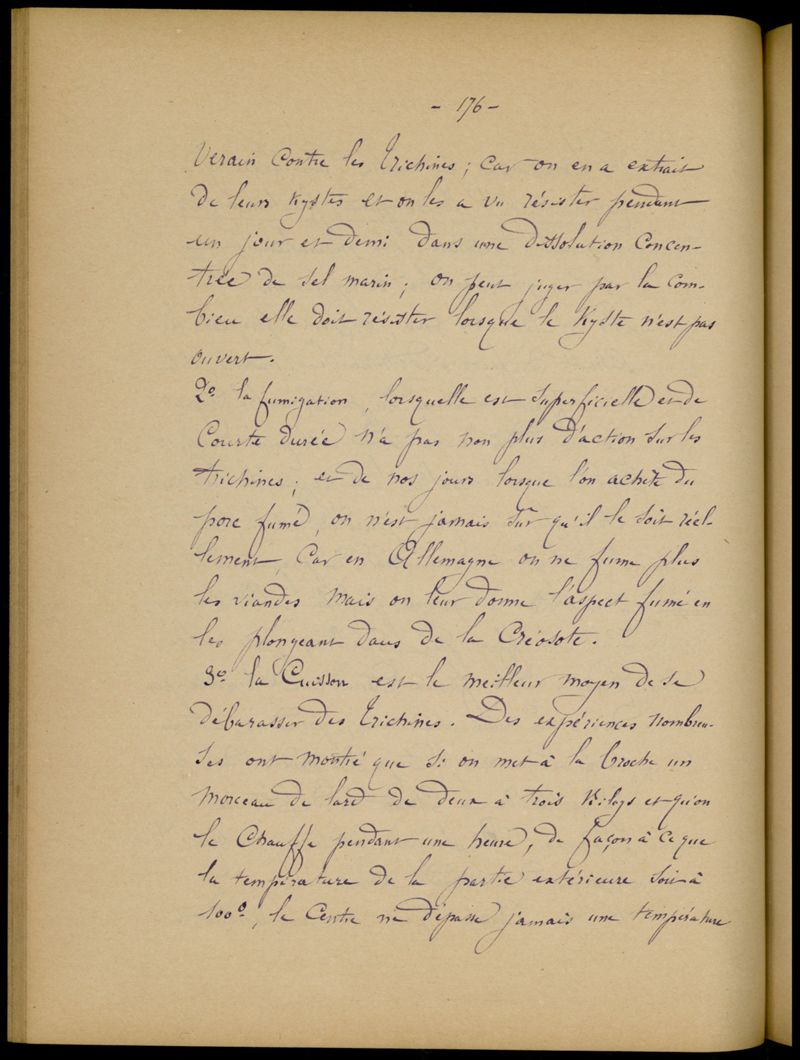 - 176 -
verain contre les trichines; car on en a extrait
de leurs kystes et on les a vu résister pendant
un jour et demi dans une dissolution concen-
trée de sel marin; on peut juger par la com-
bien elle doit résister lorsque le kyste n'est pas
ouvert.
2º la fumigation, lorsquelle est superficielle et de
courte durée n'a pas non plus d'action sur les
trichines; et de nos jours lorsque l'on achète du
porc fumé, on n'est jamais sûr qu'il le soit réel-
lement, car en Allemagne on ne fume plus
les viandes mais on leur donne l'aspect fumé en
les plongeant dans de la Créosote.
3º la Cuisson est le meilleur moyen de se
débarasser des trichines. Des expériences nombreu-
ses ont montré que si on met à la broche un
morceau de lard de deux à trois kilogs et qu'on
le chauffe pendant une heure, de façon à ce que
la température de la partie extérieure soit à
100º, le centre ne dépasse jamais une température